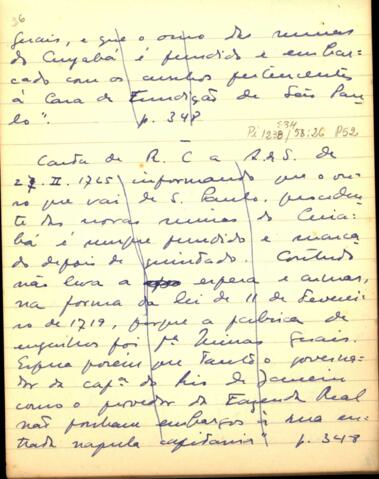 36
Gerais, e que o ouro das minas
do Cuyabá é fundido e embar-
cado com os cunhos pertencentes
à Casa de Fundição de São Pau-
lo". p. 348
534
Pi 1238/53:26 P52
Carta de R. C a R. d S. de
27. II. 1765 informando que o ou-
ro que vai de S. Paulo, proceden-
te das novas minas do Cuia-
bá é sempre fundido e marca
do depois de quintado. Contudo
não leva a esfera e armas,
na forma da lei de 11 de Feverei-
ro de 1719, porque a fabrica de
engenhos foi pª Minas Gerais.
Espera porém que tanto o governa-
dor da capª do Rio de Janeiro
como o provedor da Fazenda Real
não ponham embargos à sua en-
trada naquela capitania" p. 348